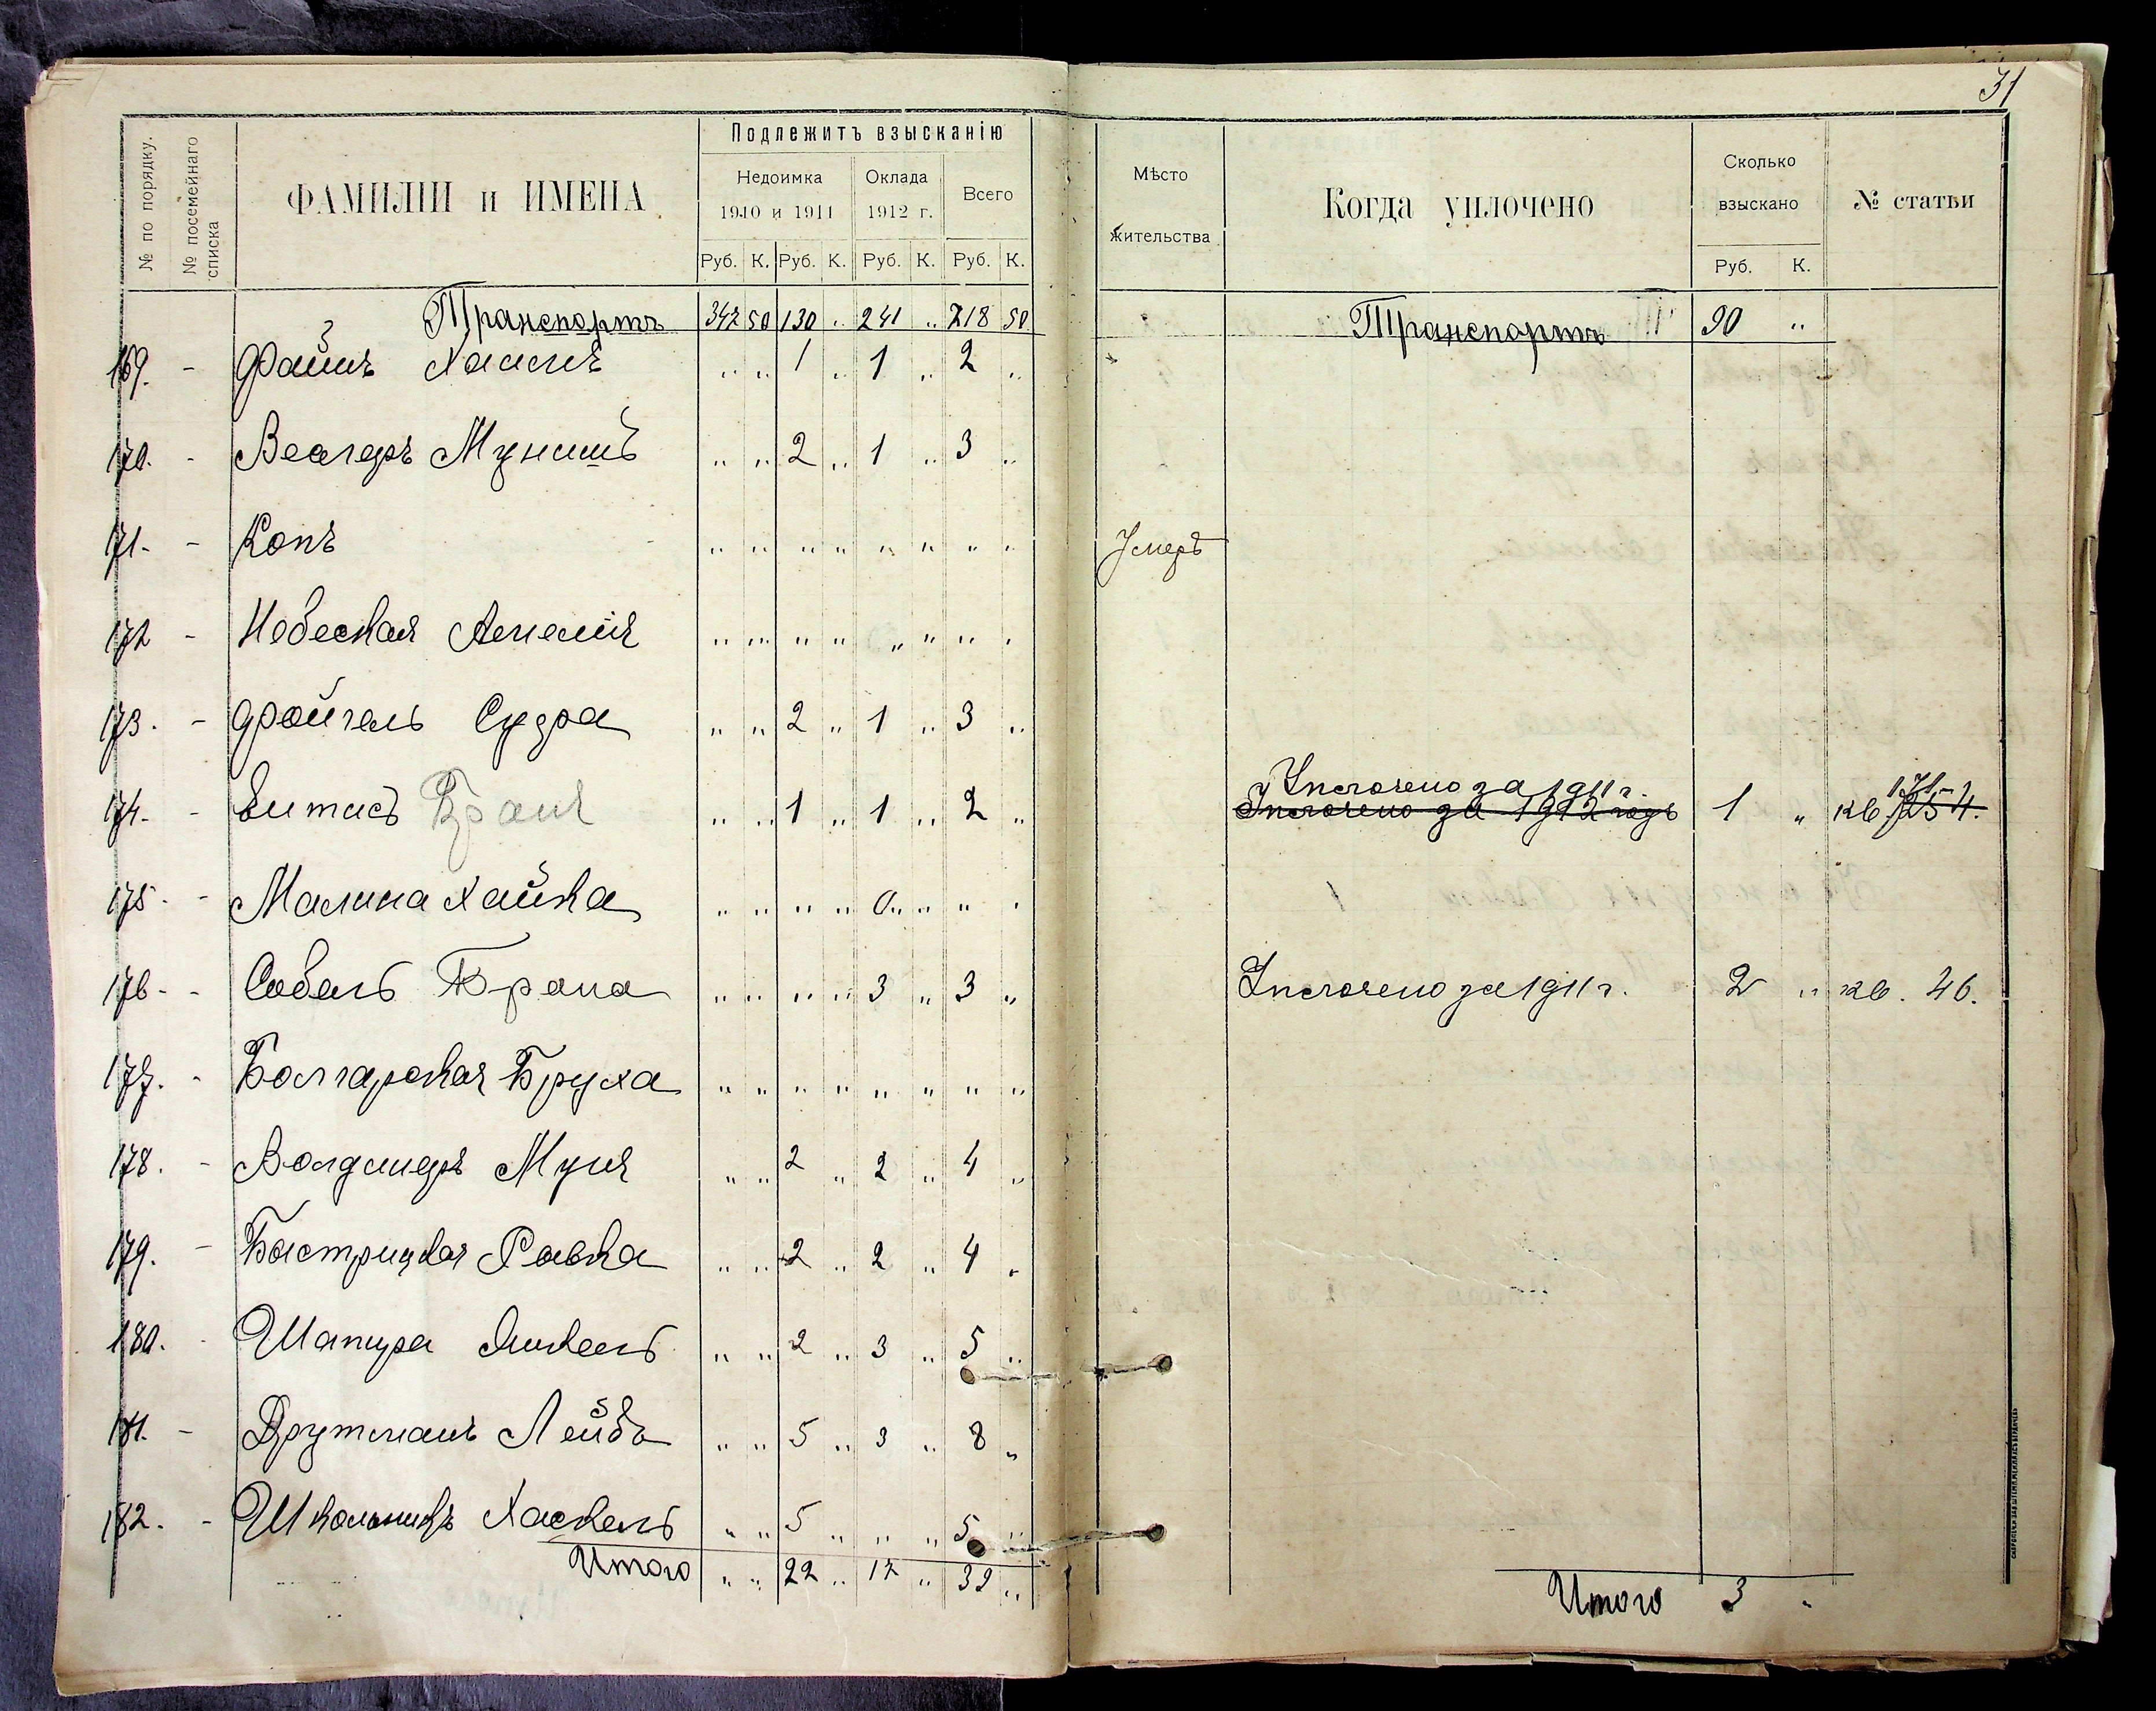 31
№ по порядку.
№ посемейнаго списка
ФАМИЛІИ и ИМЕНА
Подлежитъ взысканію
Недоимка
1910 и 1911
Оклада
1912 г.
Всего
Руб. К. Руб. К. Руб. К. Руб. К.
Мѣсто
жительства
Когда уплочено
Сколько
взыскано
Руб. К.
№ статьи
Транспортъ 342 50 130 " 241 " 718 50 Транспортъ 90 "
169. - Файнъ Хаимъ " " 1 " 1 " 2 "
170. - Веллеръ Мунишъ " " 2 " 1 " 3 "
171. - Копъ " " " " " " " " Умеръ
172 - Небеская " " " " " " " "
173. - Фойгель Сура " " 2 " 1 " 3 "
174. - " " 1 " 1 " 2 " Уплочено за 1911 г. 171
Уплочено за 1912 годъ 1 " кв. 254.
175. - Малина Хайка " " " " " " " "
176 - - Собель Брана " " " " 3 " 3 " Уплочено за 1911 г. 2 " кв. 46.
177. - Болгарская Бруха " " " " " " " "
178. - Волдимеръ Муня " " 2 " 2 " 4 "
179. - Быстрицкая Ривка " " 2 " 2 " 4 "
180. - Шапира Янкель " " 2 " 3 " 5 "
181. - Друтманъ Лейба " " 5 " 3 " 8 "
182. - Школьникъ Хаскель " " 5 " " " 5 "
Итого " " 22 " 17 " 39 " Итого 3 "